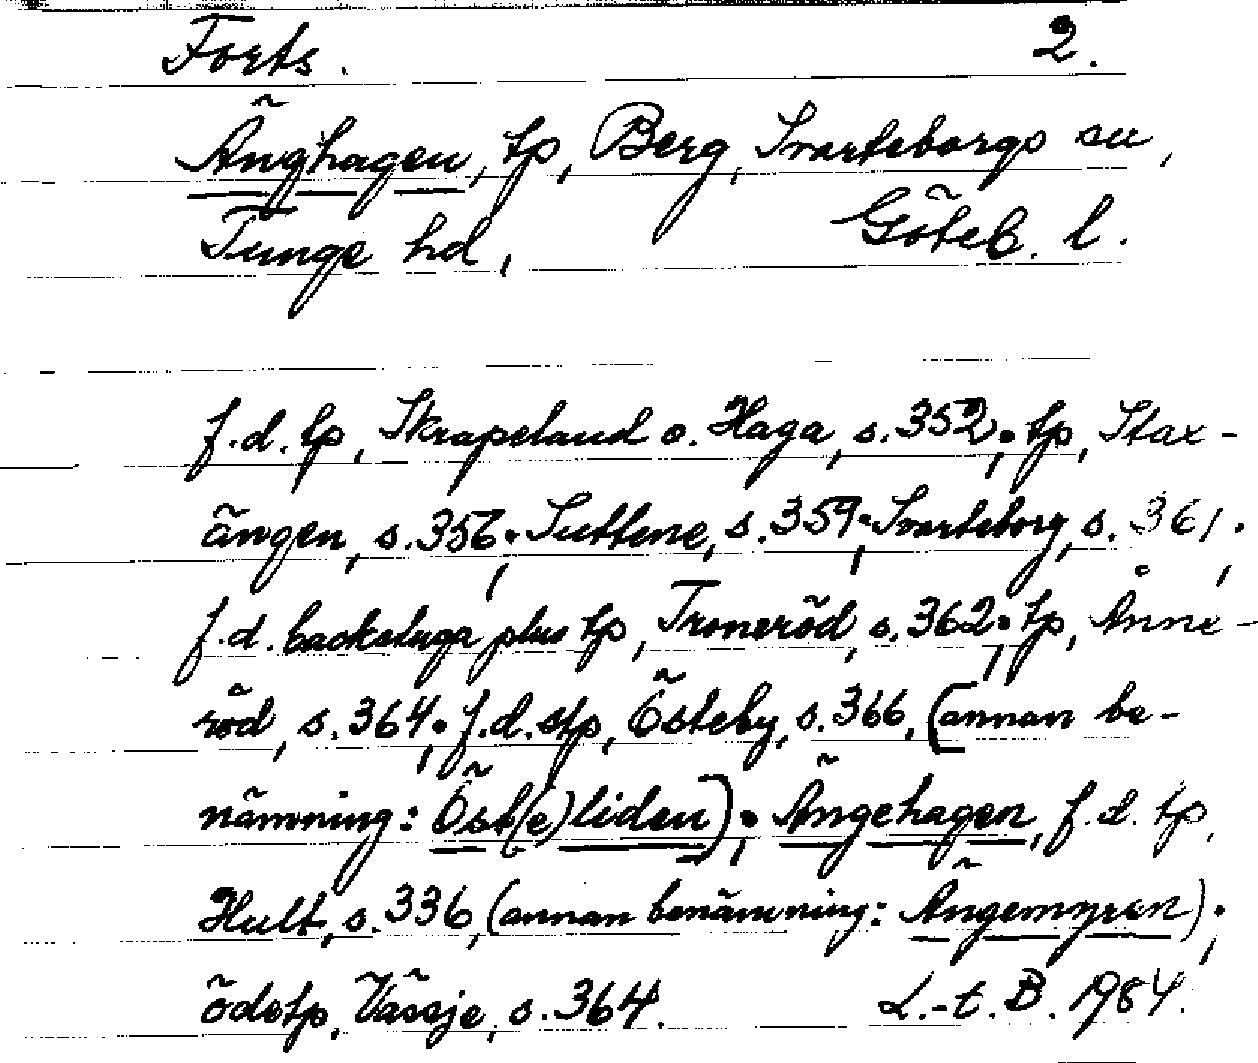 Forts. 2.
Änghagen, tp, Berg, Svarteborgs sn,
Tunge hd, Göteb. l.
f.d. tp, Skrapeland o. Haga, s. 352; tp, Stax-
ängen, s. 356; Suttene, s. 359; Svarteborg, s. 361;
f.d. backstuga plus tp, Troneröd, s. 362; tp, Änne-
röd, s. 364; f.d. stp, Östeby, s. 366, (annan be-
nämning: Öst(e)liden); Ängehagen, f.d. tp,
Hult, s. 336, (annan benämning: Ängemyren);
ödetp, Vässje, s. 364. L.-t. B. 1984.